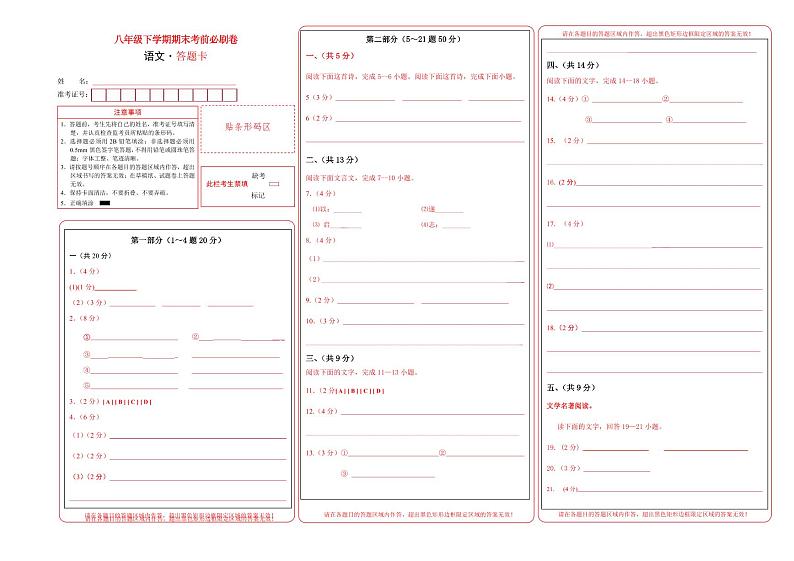 八年级下学期期末考前必刷卷
语文·答题卡
姓 名：
准考证号：
注意事项
1．答题前，考生先将自己的姓名，准考证号填写清
楚，并认真检查监考员所粘贴的条形码。
2．选择题必须用2B铅笔填涂；非选择题必须用
0.5mm黑色签字笔答题，不得用铅笔或圆珠笔答
题；字体工整、笔迹清晰。
3．请按题号顺序在各题目的答题区域内作答，超出
区域书写的答案无效；在草稿纸、试题卷上答题
无效。
4．保持卡面清洁，不要折叠、不要弄破。
5．正确填涂
贴条形码区
此栏考生禁填
缺考
标记
第一部分（1～4题20分）
一（共20分）
1.（4分）
(1)(1分)
（2）（3分）
2.（8分）
①
②
③
④
⑤
3.（2分）[A] [B] [C] [D]
4.（6分）
（1）（2分）
（2）（2分）
（3）（2分）
请在各题目的答题区域内作答，超出黑色矩形边框限定区域的答案无效！
请在各题目的答题区域内作答，超出黑色矩形边框限定区域的答案无效！
第二部分（5～21题50分）
一、（共5分）
阅读下面这首诗，完成5—6小题。阅读下面这首诗，完成下面小题。
5（3分）
6（2分）
二、（共13分）
阅读下面文言文，完成7—10小题。
7.（4分）
⑴以：
⑵遂
⑶岩
⑷志：
8.（4分）
（1）
（2）
9.（2分）
10.（3分）
三、（共9分）
阅读下面的文字，完成11—13小题。
11.（2分[A] [B] [C] [D]
12.（4分）
13.（3分）①
②
③
请在各题目的答题区域内作答，超出黑色矩形边框限定区域的答案无效！
请在各题目的答题区域内作答，超出黑色矩形边框限定区域的答案无效！
四、（共14分）
阅读下面的文字，完成14—18小题。
14.（4分）①
②
③
④
15. （2分）
16. (2分)
17. （4分）
⑴
⑵
18.（2分）
五、（共9分）
文学名著阅读。
读下面的文字，回答19—21小题。
19. (2分)
20.（3分）
21. (4分)
请在各题目的答题区域内作答，超出黑色矩形边框限定区域的答案无效！